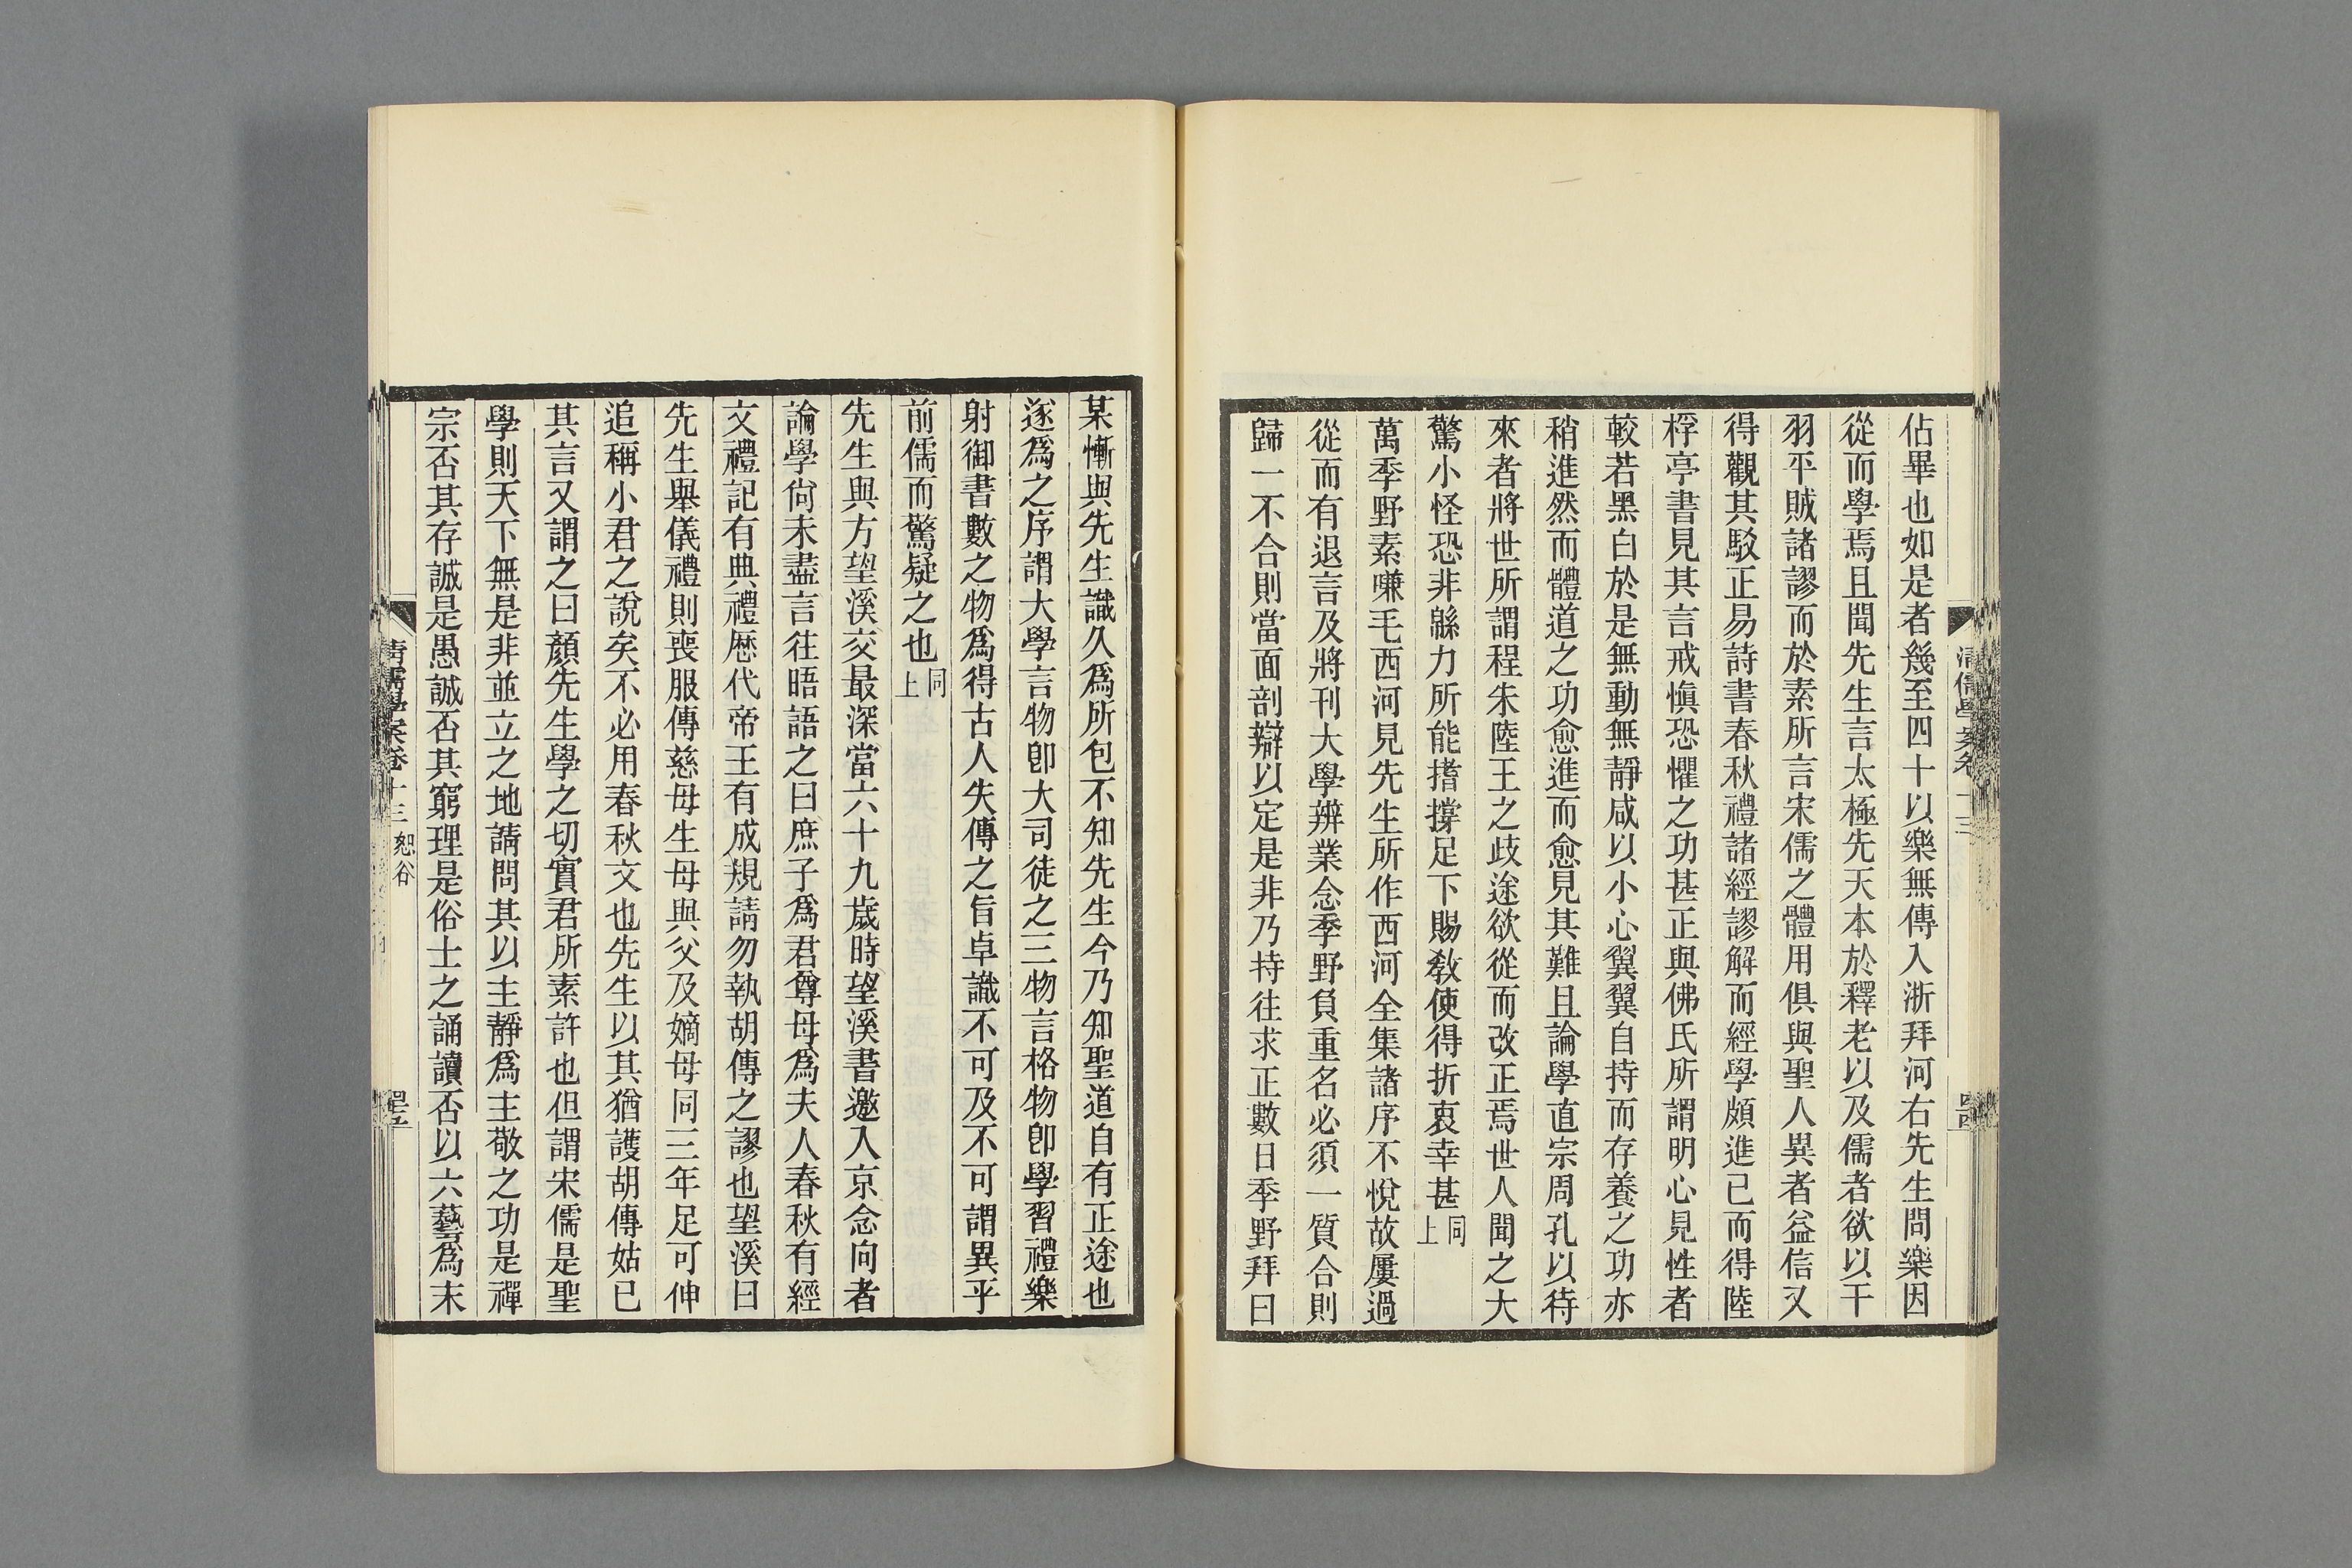 佔畢也如是者幾至四十以樂無傳入浙拜河右先生問樂因
從而學焉且聞先生言太極先天本於釋老以及儒者欲以干
羽平賊諸謬而於素所言宋儒之體用俱與聖人異者益信又
得觀其駁正易詩書春秋禮諸經謬解而經學頗進已而得陸
桴亭書見其言戒愼恐懼之功甚正與佛氏所謂明心見性者
較若黑白於是無動無靜咸以小心翼翼自持而存養之功亦
稍進然而體道之功愈進而愈見其難且論學直宗周孔以待
來者將世所謂程朱陸王之歧途欲從而改正焉世人聞之大
驚小怪恐非緜力所能搘撐足下賜敎使得折衷幸甚同上
萬季野素嗛毛西河見先生所作西河全集諸序不悅故屢過
從而有退言及將刊大學辨業念季野負重名必須一質合則
歸一不合則當面剖辯以定是非乃持往求正數日季野拜曰
清儒學案卷十三
四四
某慚與先生識久爲所包不知先生今乃知聖道自有正途也
逐爲之序謂大學言物卽大司徒之三物言格物卽學習禮樂
射御書數之物爲得古人失傳之旨卓識不可及不可謂異乎
前儒而驚疑之也同上
先生與方望溪交最深當六十九歲時望溪書邀入京念向者
論學尙未盡言往晤語之曰庶子爲君尊母爲夫人春秋有經
文禮記有典禮歷代帝王有成規請勿執胡傳之謬也望溪曰
先生舉儀禮則喪服傳慈母生母與父及嫡母同三年足可伸
追稱小君之說矣不必用春秋文也先生以其猶護胡傳姑已
其言又謂之曰顏先生學之切實君所素許也但謂宋儒是聖
學則天下無是非並立之地請問其以主靜爲主敬之功是禪
宗否其存誠是愚誠否其窮理是俗士之誦讀否以六藝爲末
清儒學案卷十三 恕谷
四五